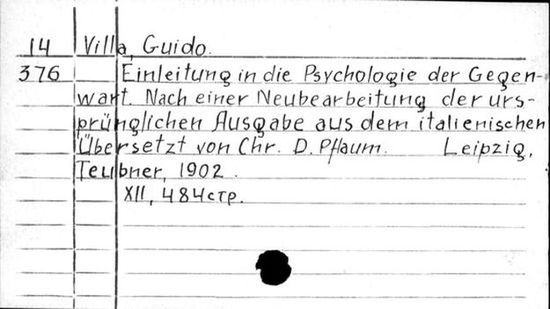 14 Villa, Guido.
376 Einleitung in die Psychologie der Gegen-
wart. Nach einer Neubearbeitung der urs-
prünglichen Ausgabe aus dem italienischen
Übersetzt von Chr. D. Pflaum. Leipzig,
Teubner, 1902.
XII, 484 стр.